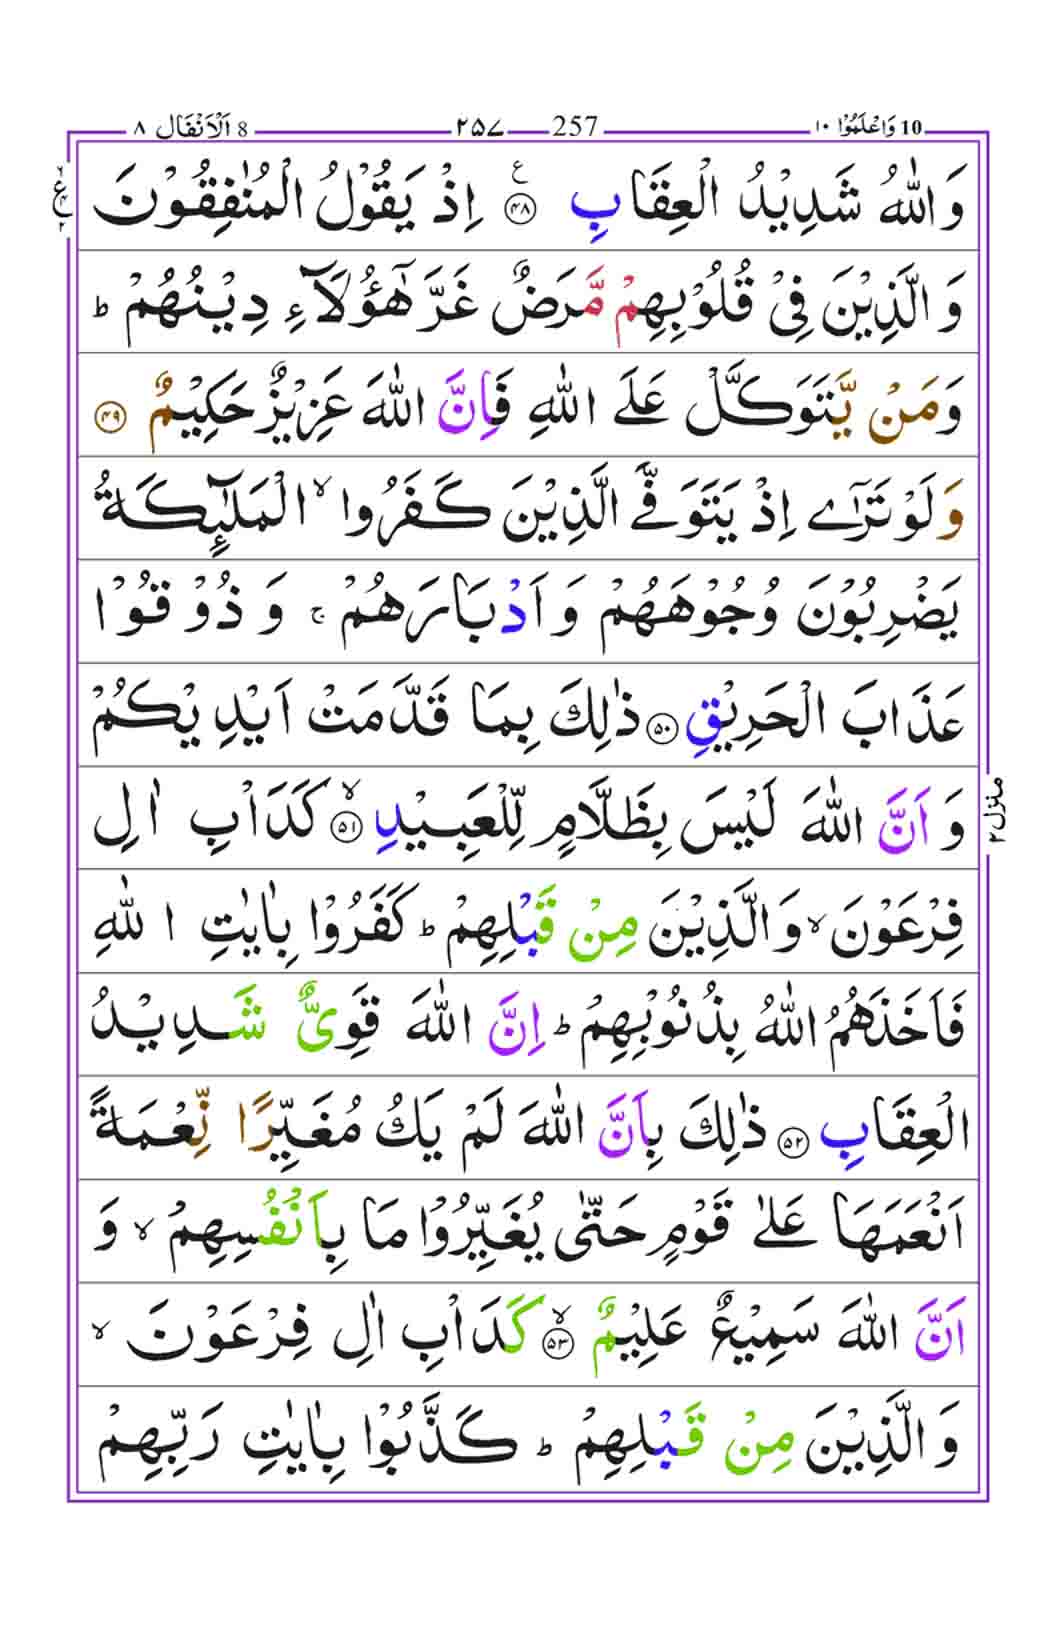 10 وَاعْلَمُوْۤا ۱۰
257 ۲۵۷
8 اَلْاَنْفَال ۸
ع ۴ ۲
وَاللّٰهُ شَدِيْدُ الْعِقَابِ ﴿۴۸﴾ ع اِذْ يَقُوْلُ الْمُنٰفِقُوْنَ
وَالَّذِيْنَ فِىْ قُلُوْبِهِمْ مَّرَضٌ غَرَّ هٰٓؤُلَآءِ دِيْنُهُمْ ؕ
وَمَنْ يَّتَوَكَّلْ عَلَى اللّٰهِ فَاِنَّ اللّٰهَ عَزِيْزٌ حَكِيْمٌ ﴿۴۹﴾
وَلَوْ تَرٰٓى اِذْ يَتَوَفَّى الَّذِيْنَ كَفَرُوا ۙ الْمَلٰٓئِكَةُ
يَضْرِبُوْنَ وُجُوْهَهُمْ وَاَدْبَارَهُمْ ۚ وَذُوْقُوْا
عَذَابَ الْحَرِيْقِ ﴿۵۰﴾ ذٰلِكَ بِمَا قَدَّمَتْ اَيْدِيْكُمْ
وَاَنَّ اللّٰهَ لَيْسَ بِظَلَّامٍ لِّلْعَبِيْدِ ۙ﴿۵۱﴾ كَدَاْبِ اٰلِ
منزل ۲
فِرْعَوْنَ ۙ وَالَّذِيْنَ مِنْ قَبْلِهِمْ ؕ كَفَرُوْا بِاٰيٰتِ اللّٰهِ
فَاَخَذَهُمُ اللّٰهُ بِذُنُوْبِهِمْ ؕ اِنَّ اللّٰهَ قَوِىٌّ شَدِيْدُ
الْعِقَابِ ﴿۵۲﴾ ذٰلِكَ بِاَنَّ اللّٰهَ لَمْ يَكُ مُغَيِّرًا نِّعْمَةً
اَنْعَمَهَا عَلٰى قَوْمٍ حَتّٰى يُغَيِّرُوْا مَا بِاَنْفُسِهِمْ ۙ وَ
اَنَّ اللّٰهَ سَمِيْعٌ عَلِيْمٌ ۙ﴿۵۳﴾ كَدَاْبِ اٰلِ فِرْعَوْنَ ۙ
وَالَّذِيْنَ مِنْ قَبْلِهِمْ ؕ كَذَّبُوْا بِاٰيٰتِ رَبِّهِمْ